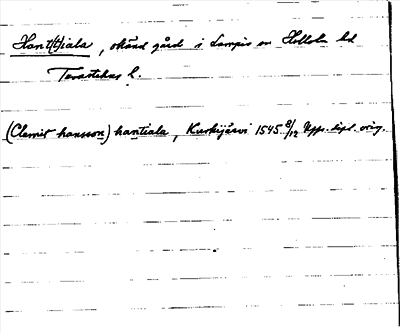 Hant(t)iala, okänd gård i Lampis sn Hollola hd
Tavastehus l.
(Clemit hansson) hantiala, Kurkijärvi 1545 8/12 Upps. dipl. orig.